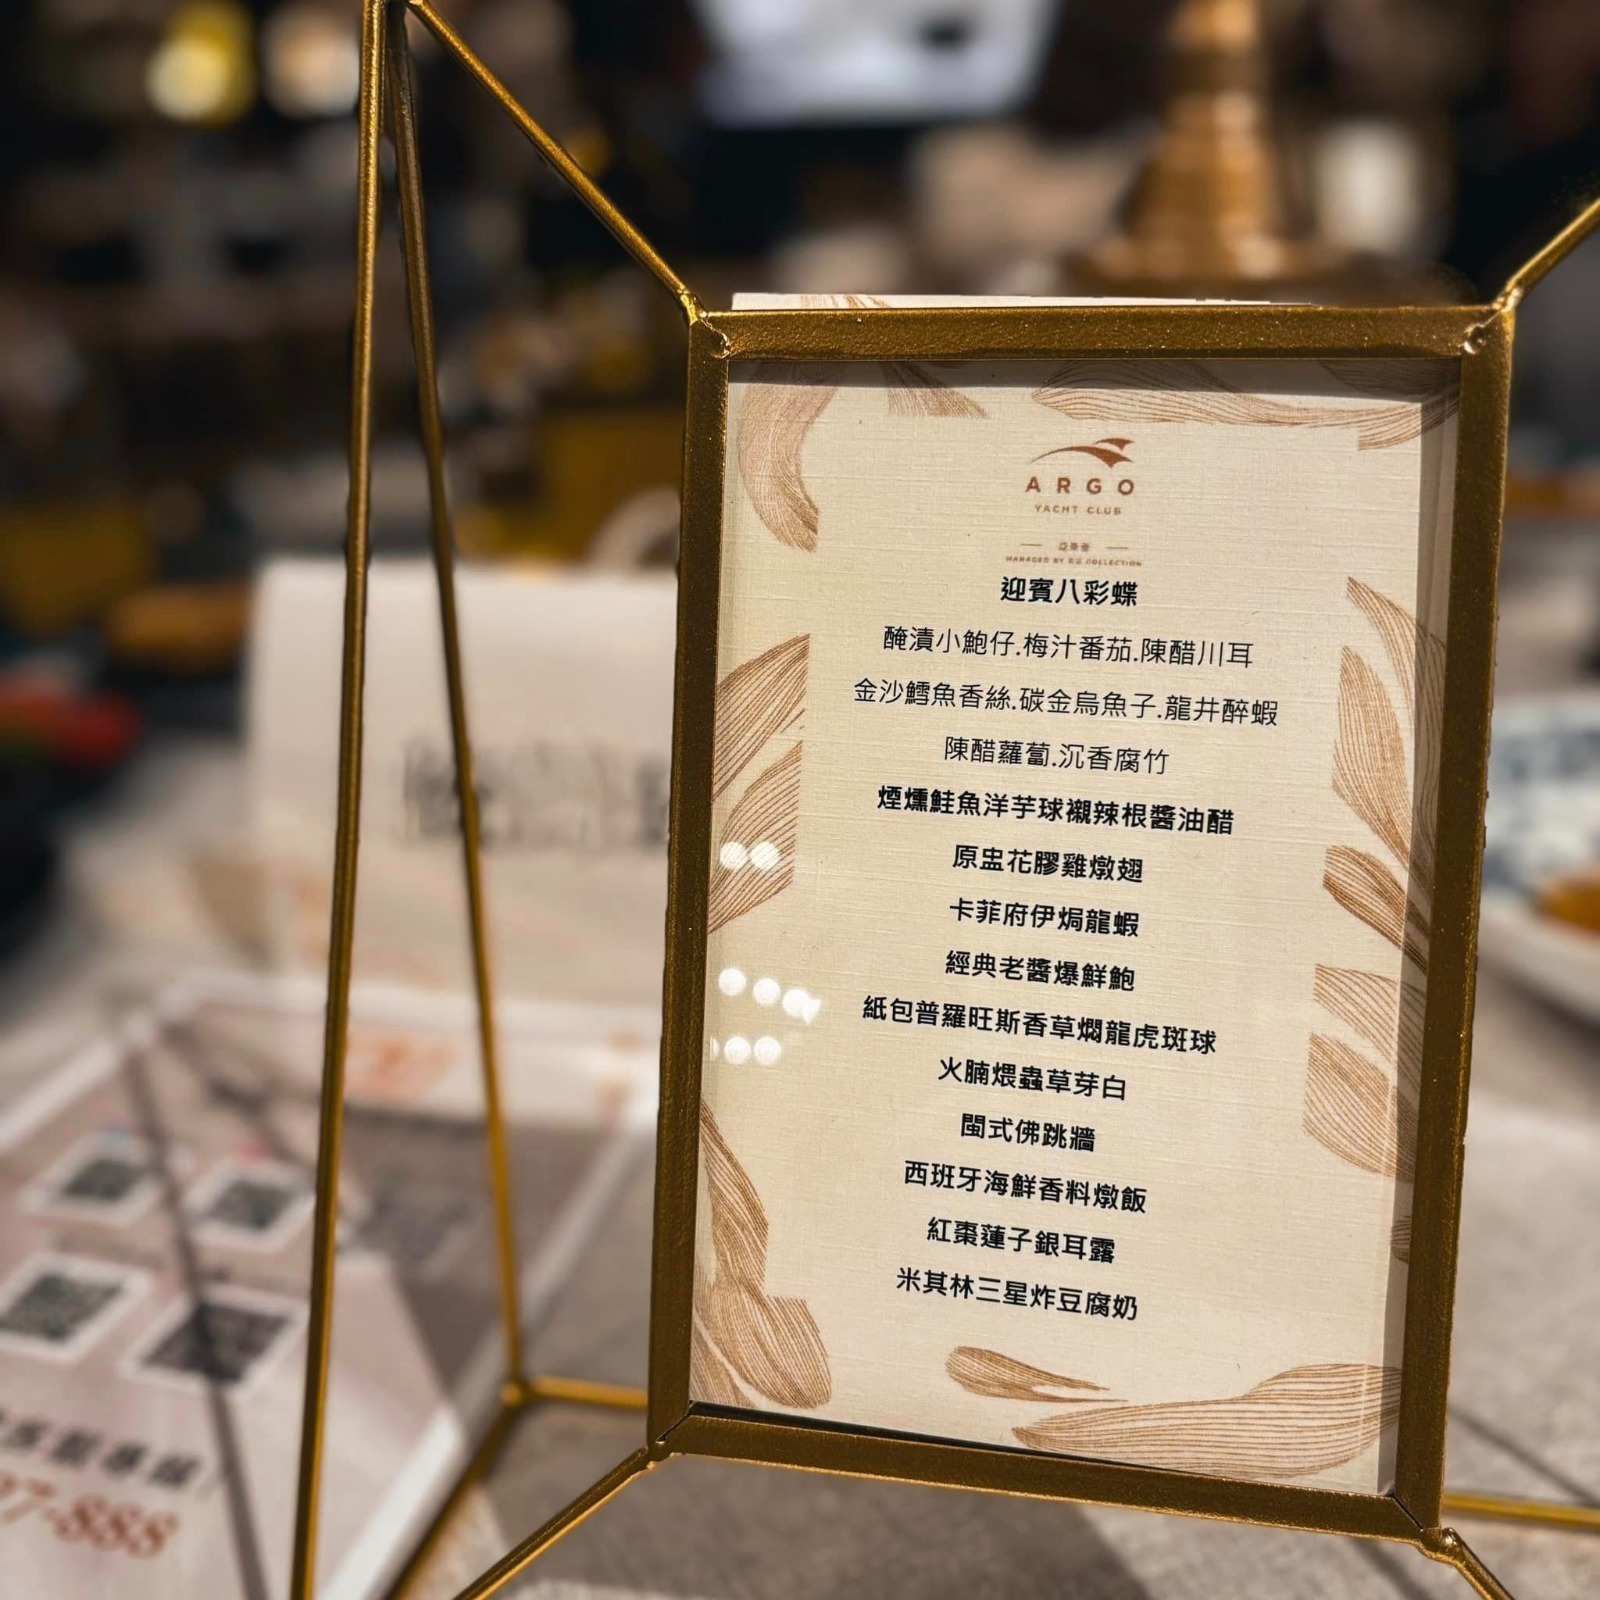 ARGO
YACHT CLUB
亞果會
MANAGED BY
COLLECTION
迎賓八彩蝶
醃漬小鮑仔.梅汁番茄.陳醋川耳
金沙鱈魚香絲.碳金烏魚子.龍井醉蝦
陳醋蘿蔔.沉香腐竹
煙燻鮭魚洋芋球襯辣根醬油醋
原盅花膠雞燉翅
卡菲府伊焗龍蝦
經典老醬爆鮮鮑
紙包普羅旺斯香草燜龍虎斑球
火腩煨蟲草芽白
閩式佛跳牆
西班牙海鮮香料燉飯
紅棗蓮子銀耳露
米其林三星炸豆腐奶
專線
97-888